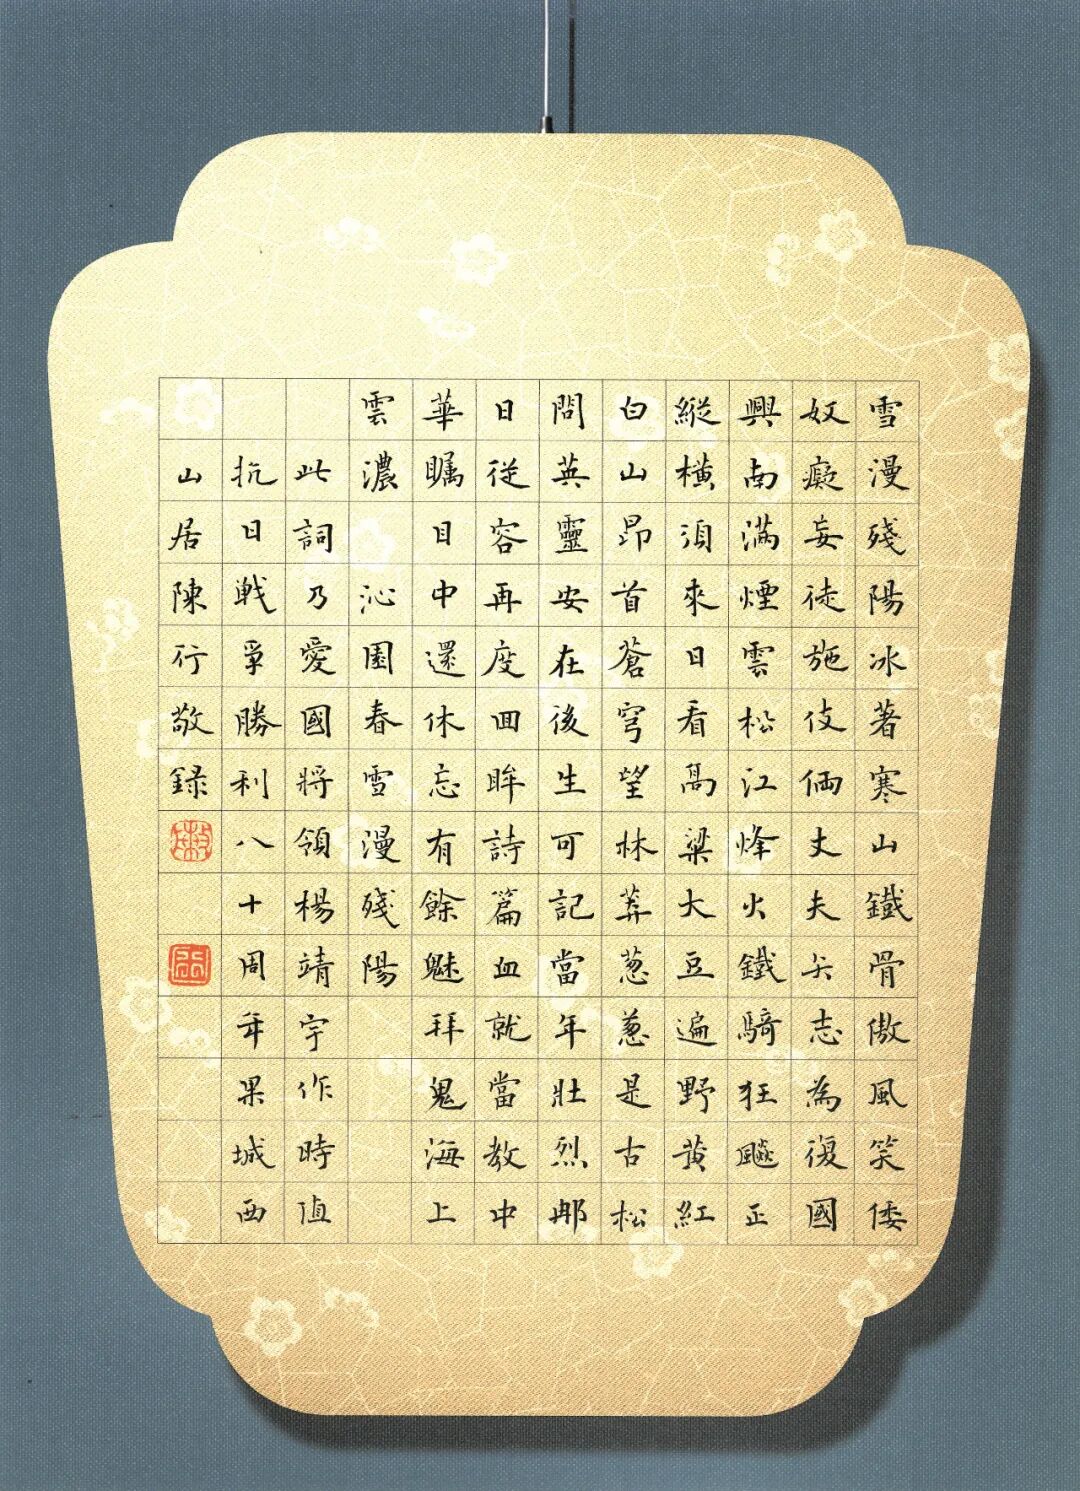 雪漫殘陽冰著寒山鐵骨傲風笑倭
奴癡妄徒施伎倆丈夫矢志為復國
興南滿煙雲松江烽火鐵騎狂飈正
縱橫須來日看高粱大豆遍野黃紅
白山昂首蒼穹望林莽蔥蔥是古松
問英靈安在後生可記當年壯烈那
日從容再度回眸詩篇血就當教中
華矚目中還休忘有餘魅拜鬼海上
雲濃 沁園春雪漫殘陽
此詞乃愛國將領楊靖宇作時值
抗日戰爭勝利八十周年果城西
山居陳行敬録